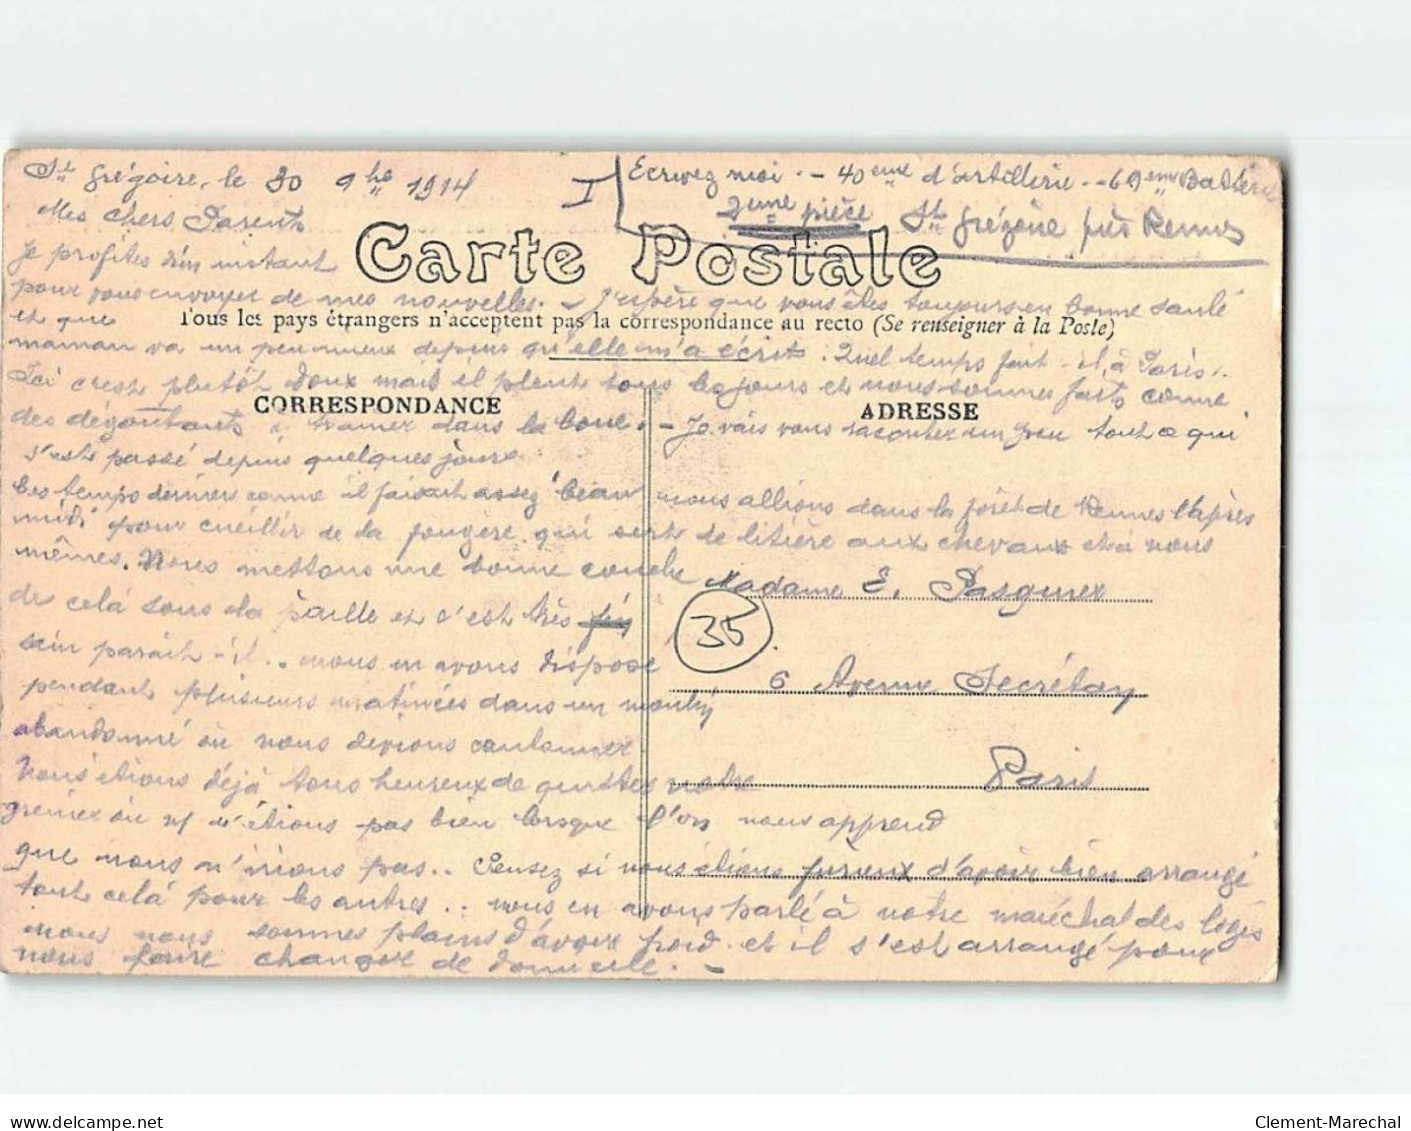 St Grégoire, le 30 9bre 1914
I
Ecrivez moi. - 40eme d'artillerie - 69eme Batterie
2eme pièce St Grégoire près Rennes
Mes chers Parents
Carte Postale
Je profites d'un instant
pour vous envoyer de mes nouvelles. - J'espère que vous êtes toujours en bonne santé
et que
Tous les pays étrangers n'acceptent pas la correspondance au recto (Se renseigner à la Poste)
maman va un peu mieux depuis qu'elle m'a écrit. Quel temps fait-il à Paris.
Ici c'est plutôt doux mais il pleut tous les jours et nous sommes faits comme
CORRESPONDANCE
ADRESSE
des dégoutants à trainer dans la boue. - Je vais vous raconter un peu tout ce qui
s'est passé depuis quelques jours
Ces temps derniers comme il faisait assez beau nous allions dans la forêt de Rennes l'après
midi pour cueillir de la fougère qui sert de litière aux chevaux et à nous
mêmes. Nous mettons une bonne couche
de celà sous la paille et c'est très
sain parait-il.. nous en avons disposé
pendant plusieurs matinées dans un moulin
abandonné où nous devions cantonner
Nous étions déjà tous heureux de quitter notre
grenier où n n'étions pas bien lorsque l'on nous apprend
que nous n'irions pas.. Pensez si nous étions furieux d'avoir bien arrangé
tout celà pour les autres.. nous en avons parlé à notre maréchal des logis
nous nous sommes plains d'avoir froid et il s'est arrangé pour
nous faire changer de domicile. -
Madame E. Pasquier
35
6 Avenue Secrétan
Paris
www.delcampe.net
Clement-Marechal